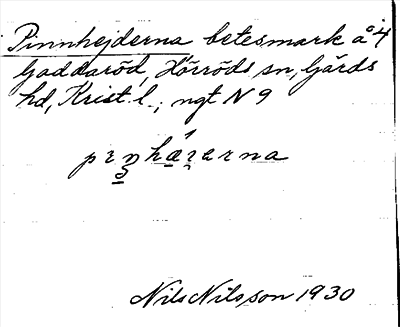 Pinnhejderna betesmark å 4
Gaddaröd, Hörröds sn, Gärds
hd, Krist. l.; ngt N 9
Nils Nilsson 1930